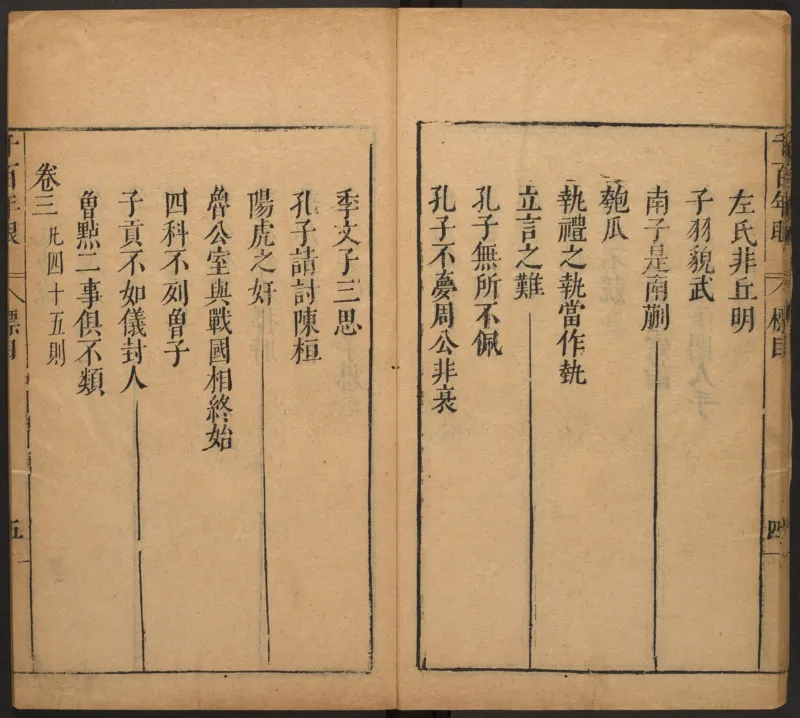 千百年眼 標目 四
左氏非丘明
子羽貌武
南子是南蒯
匏瓜
執禮之執當作埶
立言之難
孔子無所不佩
孔子不夢周公非衰
季文子三思
孔子請討陳桓
陽虎之奸
魯公室與戰國相終始
四科不列曾子
子貢不如儀封人
曾點二事俱不類
卷三 凡四十五則
千百年眼 標目 五